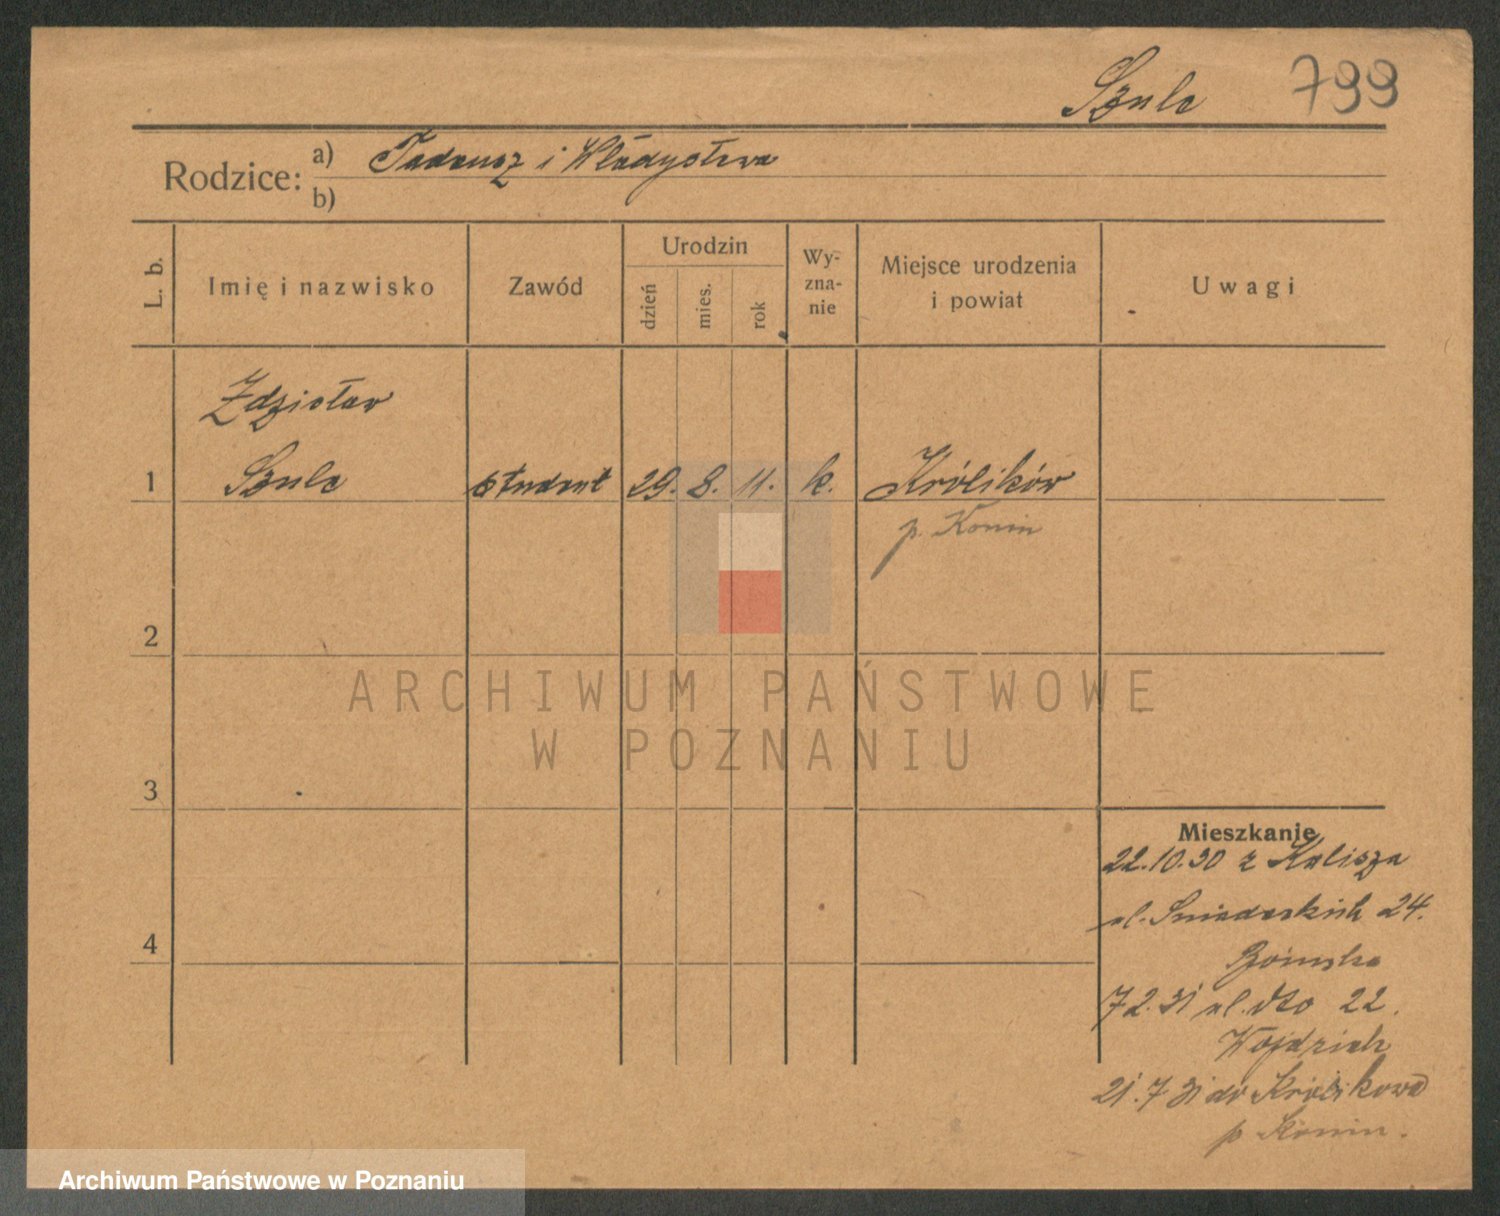 Szulc 799
Rodzice: a) Tadeusz i Władysława
b)
L. b.
Imię i nazwisko
Zawód
Urodzin
dzień
mies.
rok
Wy-
zna-
nie
Miejsce urodzenia
i powiat
Uwagi
Zdzisław
1 Szulc student 29. 8. 11. k. Królików
p. Konin
2
3
4
Mieszkanie
22.10.30 z Kalisza
ul. Śniadeckich 24.
7 2. 31 ul. dto 22.
21. 7 31 do Królikowa
p Konin.
ARCHIWUM PAŃSTWOWE
W POZNANIU
Archiwum Państwowe w Poznaniu